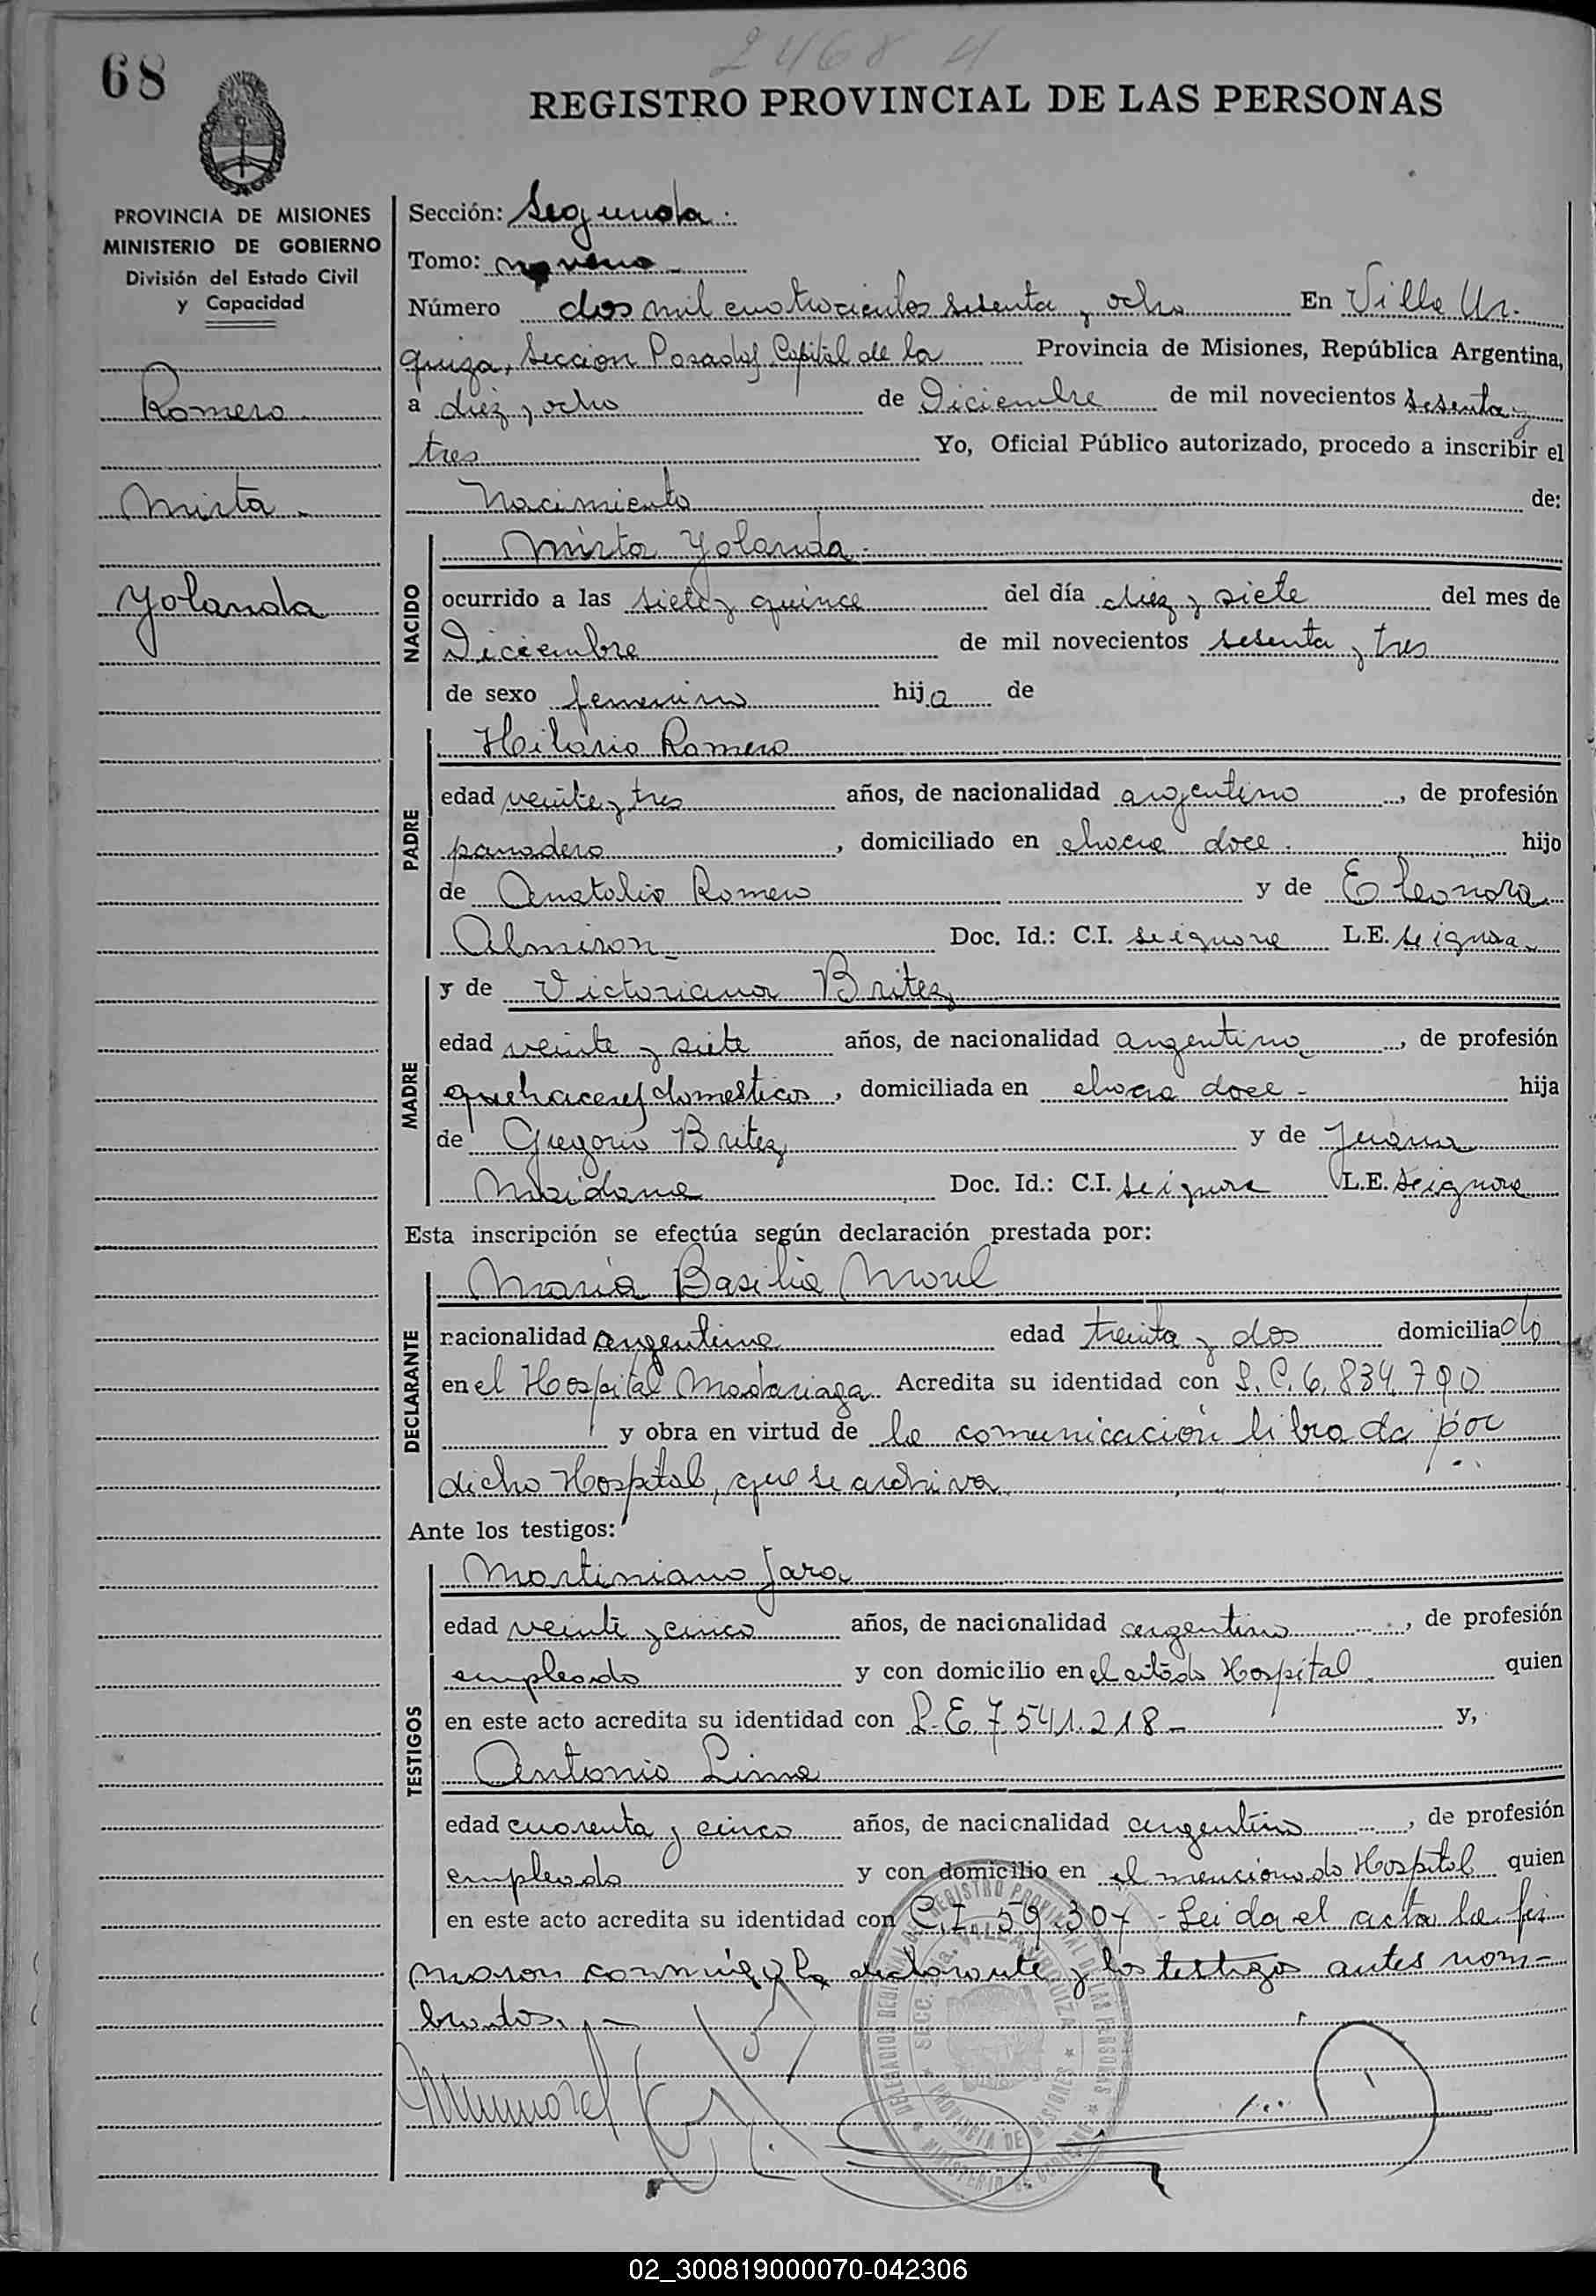 2468 4
68
REGISTRO PROVINCIAL DE LAS PERSONAS
PROVINCIA DE MISIONES
MINISTERIO DE GOBIERNO
División del Estado Civil
y Capacidad
Romero
Mirta
Yolanda
Sección: Segunda.
Tomo: noveno
Número dos mil cuatrocientos sesenta y ocho En Villa Ur-
quiza, Seccion Posadas Capital de la Provincia de Misiones, República Argentina,
a diez y ocho de Diciembre de mil novecientos sesenta y
tres Yo, Oficial Público autorizado, procedo a inscribir el
Nacimiento de:
NACIDO
Mirta Yolanda.
ocurrido a las siete y quince del día diez y siete del mes de
Diciembre de mil novecientos sesenta y tres
de sexo femenino hija de
PADRE
Hilario Romero
edad veinte y tres años, de nacionalidad argentino, de profesión
panadero, domiciliado en chacra doce. hijo
de Anatolio Romero y de Eleonora
Almiron Doc. Id.: C.I. se ignora L.E. se ignora
MADRE
y de Victoriana Britez
edad veinte y siete años, de nacionalidad argentina, de profesión
quehaceres domesticos, domiciliada en chacra doce - hija
de Gregorio Britez y de Juana
Maidana Doc. Id.: C.I. se ignora L.E. se ignora
Esta inscripción se efectúa según declaración prestada por:
DECLARANTE
Maria Basilia Morel
nacionalidad argentina edad treinta y dos domiciliado
en el Hospital Madariaga Acredita su identidad con L.C. 6.834.790
y obra en virtud de la comunicación librada por
dicho Hospital, que se archiva
Ante los testigos:
TESTIGOS
Martiniano Jara
edad veinte y cinco años, de nacionalidad argentino, de profesión
empleado y con domicilio en el citado Hospital quien
en este acto acredita su identidad con L.E. 7.541.218 - y,
Antonio Lima
edad cuarenta y cinco años, de nacionalidad argentino, de profesión
empleado y con domicilio en el mencionado Hospital quien
en este acto acredita su identidad con C.I. 59.307 - Leida el acta la fir-
maron conmigo la declarante y los testigos antes nom-
brados. -
REGISTRO PROVINCIAL DE LAS PERSONAS
VILLA URQUIZA
PROVINCIA DE MISIONES
MINISTERIO DE GOBIERNO
02_300819000070-042306